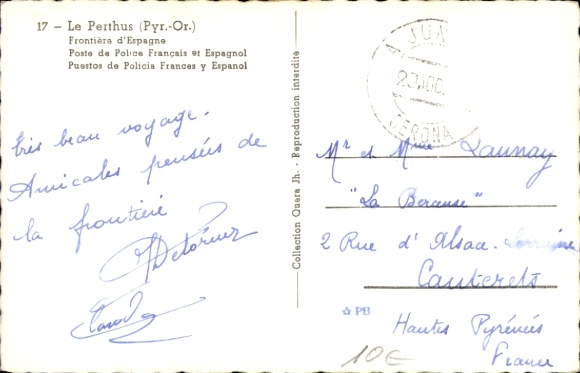 17 – Le Perthus (Pyr.-Or.)
Frontière d'Espagne
Poste de Police Français et Espagnol
Puestos de Policia Frances y Espanol
très beau voyage.
Amicales pensées de
la frontière
Collection Quera Jh. - Reproduction interdite
A JUN
GERONA
Mr et Mme Launay
"La Berceuse"
2 Rue d'Alsace-Lorraine
Cauterets
Hautes Pyrénées
France
☆ PB
10€